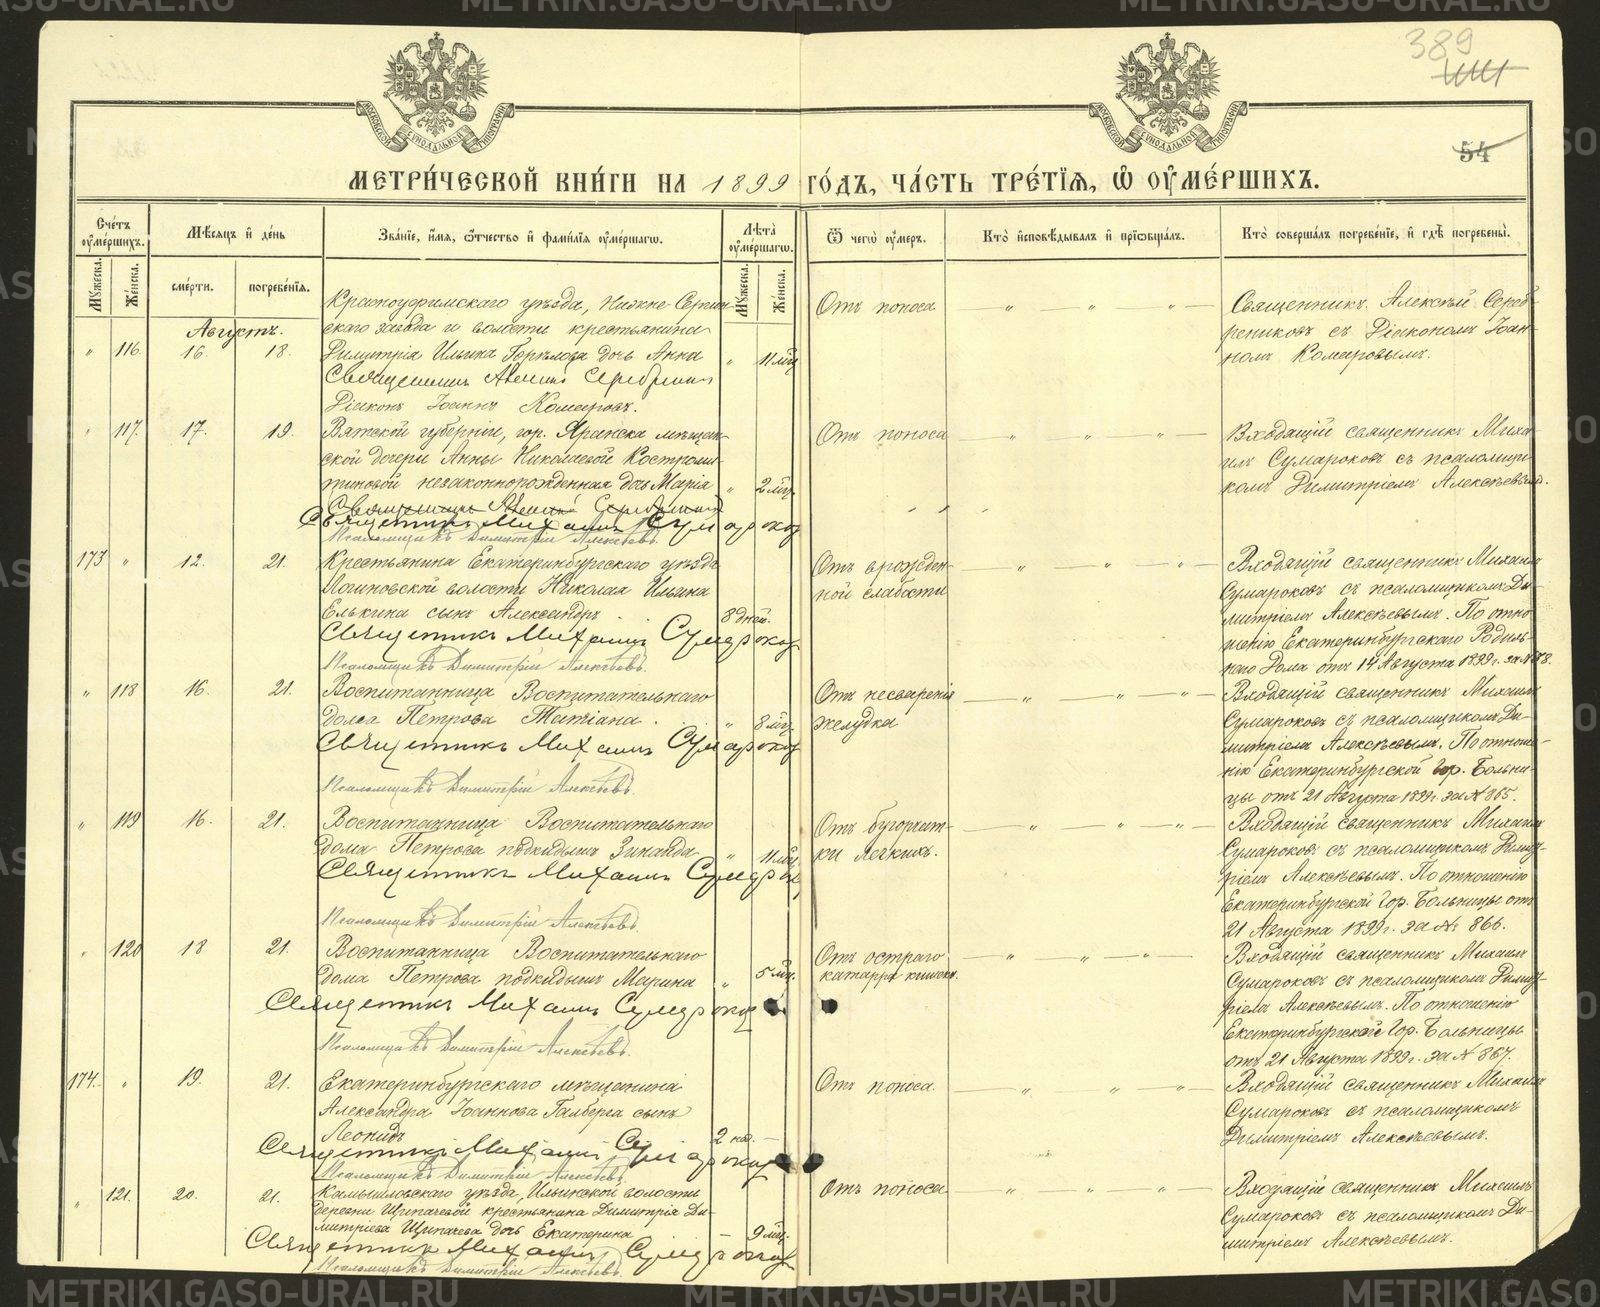 METRIKI.GASO-URAL.RU
389
54
МОСКОВСКОЙ СѴНОДАЛЬНОЙ ТИПОГРАФІИ
МОСКОВСКОЙ СѴНОДАЛЬНОЙ ТИПОГРАФІИ
МЕТРИ́ЧЕСКОЙ КНИ́ГИ НА 1899 ГО́ДЪ, ЧА́СТЬ ТРЕ́ТІЯ, Ѡ ОУМЕ́РШИХЪ.
Сче́тъ оумершихъ.
Мѣсяцъ и де́нь
Зва́ніе, и́мя, ѻтчество и фами́лія оуме́ршагѡ.
Лѣта̀ оуме́ршагѡ.
Ѿ чегѡ̀ оу́меръ.
Кто̀ исповѣдывалъ и пріѡбща́лъ.
Кто̀ соверша́лъ погребе́ніе, и гдѣ̀ погребены̀.
Мужеска.
Же́нска.
сме́рти.
погребе́нія.
Мужеска.
Же́нска.
Августъ.
" 116. 16. 18.
Красноуфимскаго уѣзда, Нижне-Сергин-
скаго завода и волости крестьянина
Димитрія Ильина Горѣлова дочь Анна
" 11 мѣц.
Священникъ Алексій Серебрен
Діаконъ Іоаннъ Комаровъ.
Отъ поноса
— " — " — " —
Священникъ Алексѣй Сереб-
рениковъ съ Діакономъ Іоан-
номъ Комаровымъ.
" 117. 17. 19.
Вятской губерніи, гор. Яранска мѣщан-
ской дочери Анны Николаевой Костроми-
тиновой незаконнорожденная дочь Марія
" 2 мѣц.
Священникъ Алексій
Священникъ Михаилъ Сумароков
Псаломщикъ Димитрій Алексѣевъ.
Отъ поноса
— " — " — " —
Входящій священникъ Миха-
илъ Сумароковъ съ псаломщи-
комъ Димитріемъ Алексѣевымъ.
173 " 12. 21.
Крестьянина Екатеринбургскаго уѣзда
Логиновской волости Николая Ильина
Елькина сынъ Александръ
8 дней.
Священникъ Михаилъ Сумароков
Псаломщикъ Димитрій Алексѣевъ.
Отъ врожден-
ной слабости
— " — " — " —
Входящій священникъ Михаилъ
Сумароковъ съ псаломщикомъ Ди-
митріемъ Алексѣевымъ. По отно-
шенію Екатеринбургскаго Родиль-
наго Дома отъ 14 Августа 1899 г. за №
" 118 16. 21.
Воспитанница Воспитательнаго
дома Петрова Татіана
" 8 мѣц.
Священникъ Михаилъ Сумароков
Псаломщикъ Димитрій Алексѣевъ.
Отъ несваренія
желудка
— " — " — " —
Входящій священникъ Михаилъ
Сумароковъ съ псаломщикомъ Ди-
митріемъ Алексѣевымъ. По отноше-
нію Екатеринбургской Гор. Больни-
цы отъ 21 Августа 1899 г. за № 865.
" 119 16. 21.
Воспитанница Воспитательнаго
дома Петрова подкидышъ Зинаида
" 11 мѣц.
Священникъ Михаилъ Сумароков
Псаломщикъ Димитрій Алексѣевъ.
Отъ бугорчат-
ки легкихъ.
— " — " — " —
Входящій священникъ Михаилъ
Сумароковъ съ псаломщикомъ Димит-
ріемъ Алексѣевымъ. По отношенію
Екатеринбургской Гор. Больницы отъ
21 Августа 1899 г. за № 866.
" 120 18 21.
Воспитанница Воспитательнаго
дома Петрова подкидышъ Марина
" 5 мѣц.
Священникъ Михаилъ Сумароков
Псаломщикъ Димитрій Алексѣевъ.
Отъ остраго
катарра кишекъ.
— " — " — " —
Входящій священникъ Михаилъ
Сумароковъ съ псаломщикомъ Димит-
ріемъ Алексѣевымъ. По отношенію
Екатеринбургской Гор. Больницы
отъ 21 Августа 1899 г. за № 867.
174. " 19. 21.
Екатеринбургскаго мѣщанина
Александра Іоаннова Галберга сынъ
Леонидъ
2 нед. —
Священникъ Михаилъ Сумароков
Псаломщикъ Димитрій Алексѣевъ.
Отъ поноса.
— " — " — " —
Входящій священникъ Михаилъ
Сумароковъ съ псаломщикомъ
Димитріемъ Алексѣевымъ.
" 121. 20. 21.
Камышловскаго уѣзда, Ильинской волости
деревни Щипачевой крестьянина Димитрія Ди-
митріева Щипачева дочь Екатерина
— 9 мѣц.
Священникъ Михаилъ Сумароков
Псаломщикъ Димитрій Алексѣевъ.
Отъ поноса
— " — " — " —
Входящій священникъ Михаилъ
Сумароковъ съ псаломщикомъ Ди-
митріемъ Алексѣевымъ.
METRIKI.GASO-URAL.RU